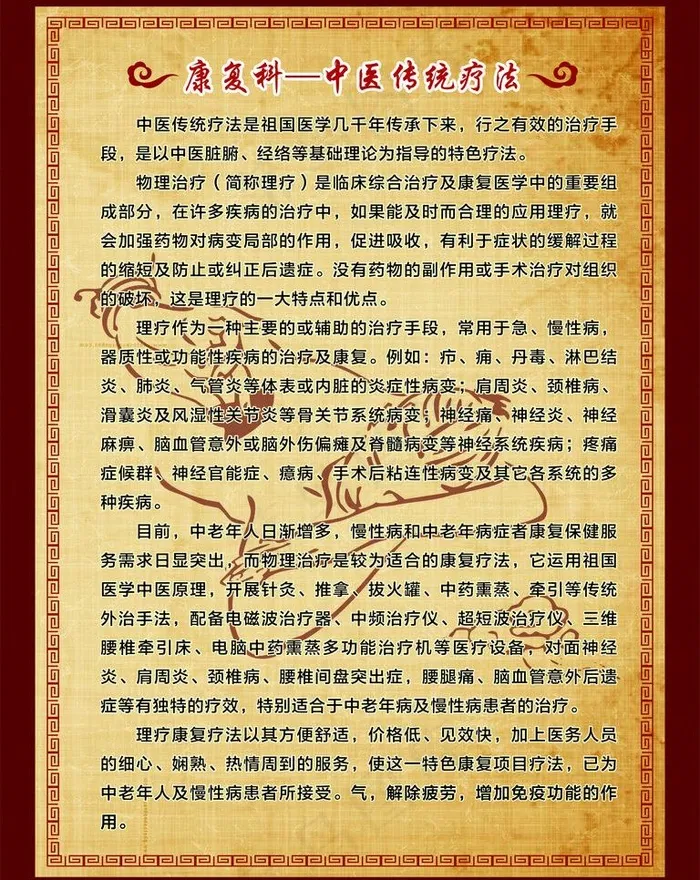 康复科—中医传统疗法
中医传统疗法是祖国医学几千年传承下来，行之有效的治疗手
段，是以中医脏腑、经络等基础理论为指导的特色疗法。
物理治疗（简称理疗）是临床综合治疗及康复医学中的重要组
成部分，在许多疾病的治疗中，如果能及时而合理的应用理疗，就
会加强药物对病变局部的作用，促进吸收，有利于症状的缓解过程
的缩短及防止或纠正后遗症。没有药物的副作用或手术治疗对组织
的破坏，这是理疗的一大特点和优点。
理疗作为一种主要的或辅助的治疗手段，常用于急、慢性病，
器质性或功能性疾病的治疗及康复。例如：疖、痈、丹毒、淋巴结
炎、肺炎、气管炎等体表或内脏的炎症性病变；肩周炎、颈椎病、
滑囊炎及风湿性关节炎等骨关节系统病变；神经痛、神经炎、神经
麻痹、脑血管意外或脑外伤偏瘫及脊髓病变等神经系统疾病；疼痛
症候群、神经官能症、癔病、手术后粘连性病变及其它各系统的多
种疾病。
目前，中老年人日渐增多，慢性病和中老年病症者康复保健服
务需求日显突出，而物理治疗是较为适合的康复疗法，它运用祖国
医学中医原理，开展针灸、推拿、拔火罐、中药熏蒸、牵引等传统
外治手法，配备电磁波治疗器、中频治疗仪、超短波治疗仪、三维
腰椎牵引床、电脑中药熏蒸多功能治疗机等医疗设备，对面神经
炎、肩周炎、颈椎病、腰椎间盘突出症，腰腿痛、脑血管意外后遗
症等有独特的疗效，特别适合于中老年病及慢性病患者的治疗。
理疗康复疗法以其方便舒适，价格低、见效快，加上医务人员
的细心、娴熟、热情周到的服务，使这一特色康复项目疗法，已为
中老年人及慢性病患者所接受。气，解除疲劳，增加免疫功能的作
用。